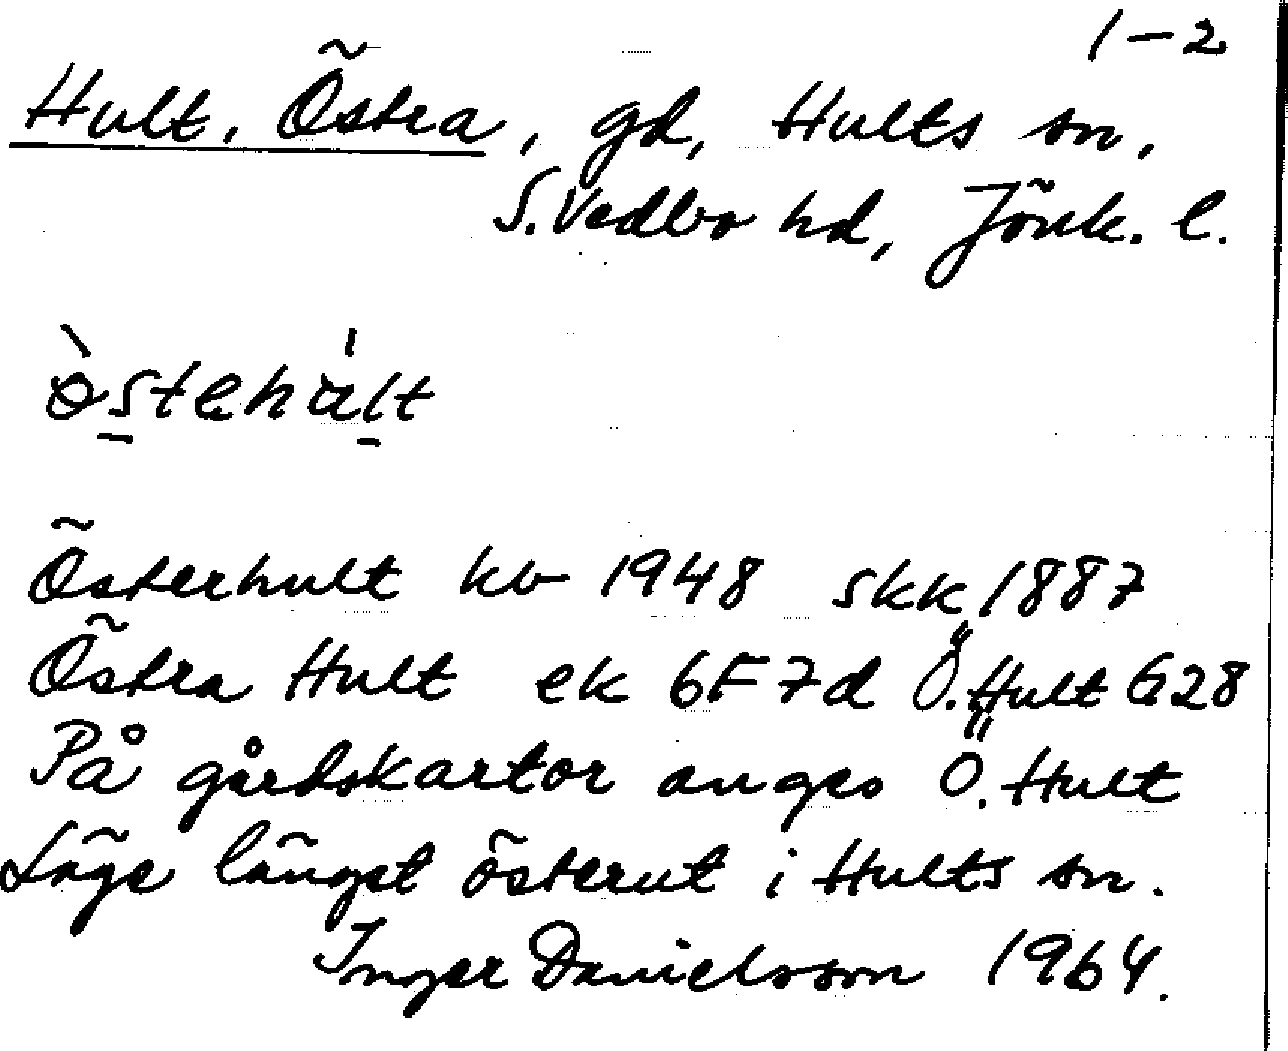 1-2
Hult, Östra, gd, Hults sn,
S. Vedbo hd, Jönk. l.
östehult
Österhult kb 1948 skk 1887
Östra Hult ek 6F7d Ö. Hult G28
På gårdskartor anges Ö. Hult
Läge längst österut i Hults sn.
Inger Danielsson 1964.